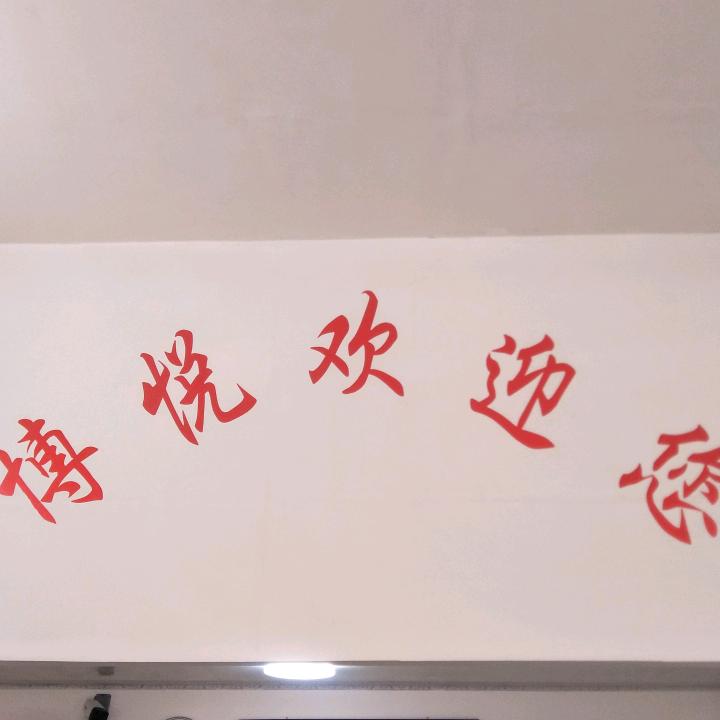 博悦欢迎您